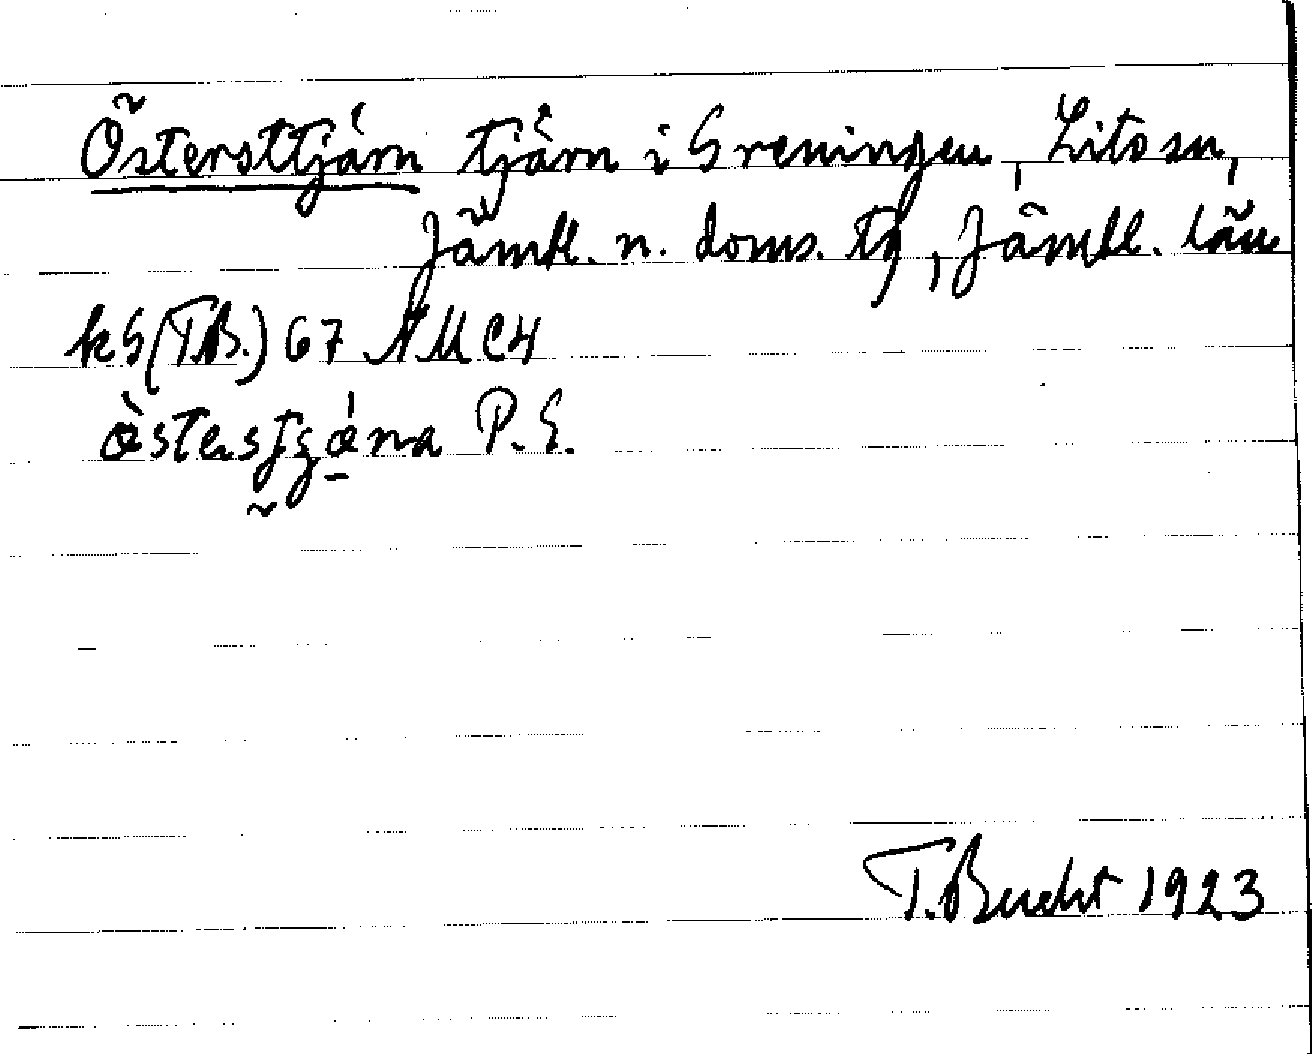 Östersttjärn tjärn i Greningen, Lits sn,
Jämtl. n. doms. tg, Jämtl. län
kS(TB.) 67 NMC4
P. E.
T. Bucht 1923